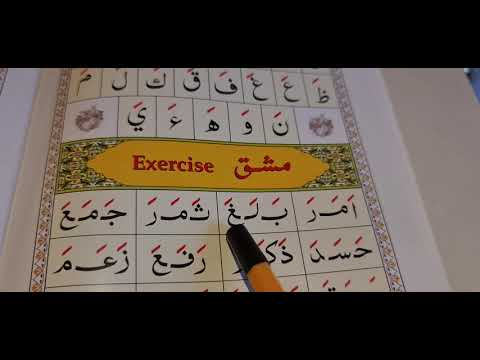 ظَ عَ غَ فَ قَ كَ لَ مَ
نَ وَ هَ ءَ يَ
مشق Exercise
اَمَرَ بَلَغَ ثَمَرَ جَمَعَ
حَسَدَ ذَكَرَ رَفَعَ زَعَمَ